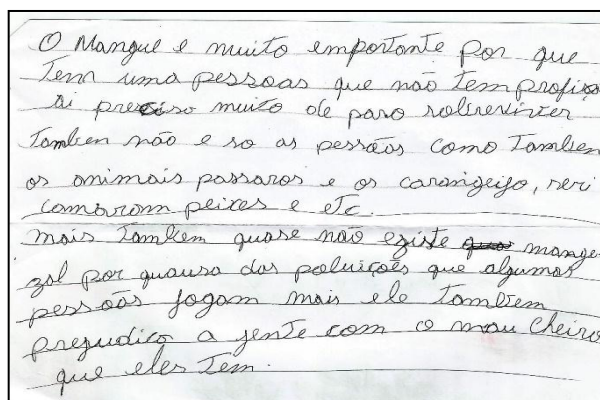 O Mangue e muito emportante por que
Tem uma pessoas que não Tem profição
ai preciso muito de para sobrevinter
Tamben não e so as pessoas como Tambem
os animais passaros e os carangeijo, seri
camarom peixes e etc.
mais Tambem quase não egiste mange
zal por quausa das poluições que algumas
pessoas jogam mais ele Tambem
prejudica a jente com o mau cheiro
que eles Tem.